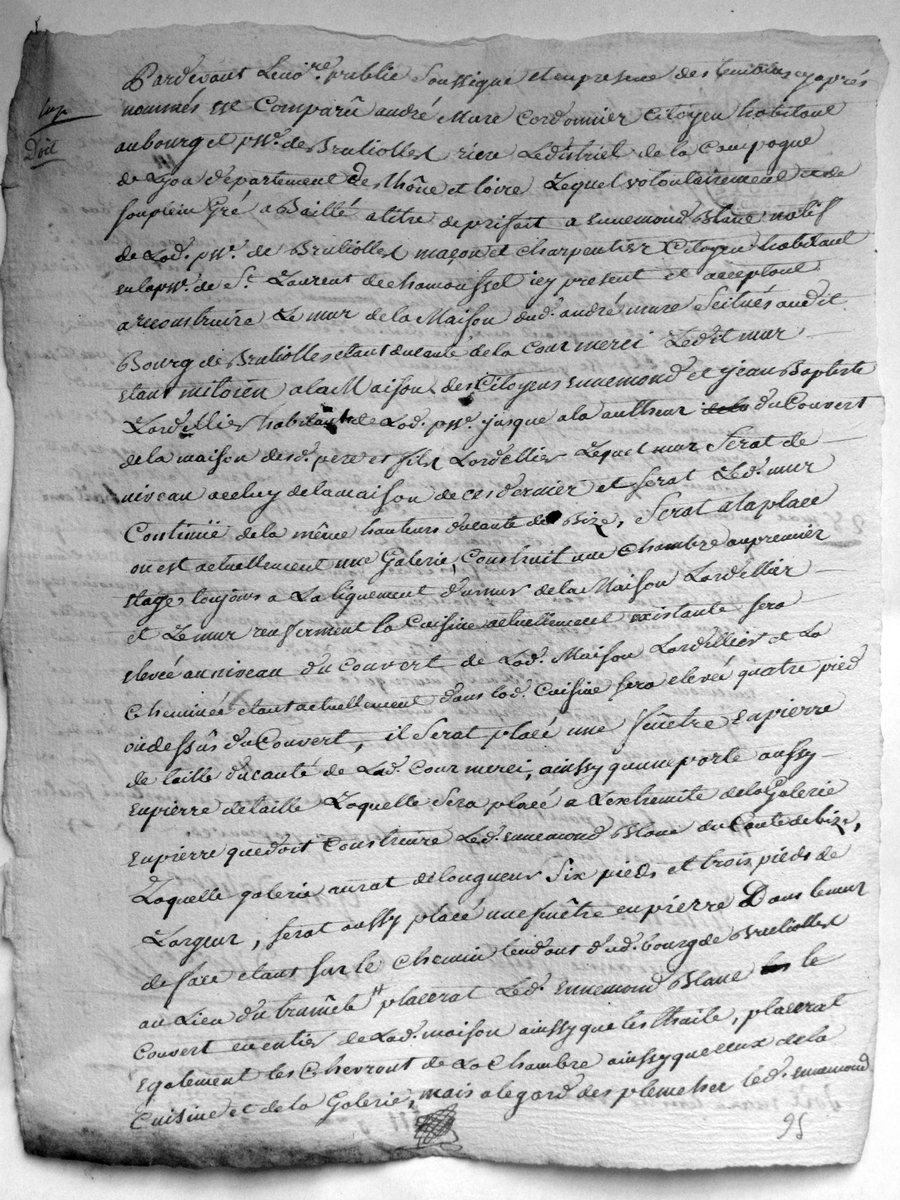 Pardevant Le no.re public Soussigné et en presence des temoins cy après
nommés est Comparû andré Mure Cordonnier Citoyen habitant
Doit
au bourg et p.sse de Brulliolles riere Le district de la Campagne
de Lyon département de Rhône et Loire Lequel volontairement et de
son plein Gré a Baillé a titre de prifait a Ennemond Blanc natif
de Lad. p.sse de Brulliolles maçon et charpentier Citoyen habitant
en la p.sse de S.t Laurent de chamousset icy present et acceptant
a reconstruire Le mur de la Maison dud. andré mure Scitués audit
Bourg de Brulliolles etant du cauté de la Cour merci Ledit mur
etant mitoien a la Maison des Citoyens Ennemond et jean Baptiste
Lordellier habitant de Lad. p.sse jusque a la autheur du Couvert
de la maison desd. pere et fils Lordellier Lequel mur Serat de
niveau a celuy de la maison de ces dernier et serat Led. mur
Continüé de la même hauteurs du cauté de Bize, Serat a la place
ou est actuellement une Galerie, Construit une Chambre au premier
etage, toujours a La lignement du mur de la Maison Lordellier
et Le mur renferment la Cuisine actuellement existante sera
elevée au niveau du Couvert de Lad. Maison Lordellier et La
Cheminée etant actuellement dans lad. Cuisine sera elevée quatre pied
au dessûs du Couvert, il Serat placé une fenêtre en pierre
de taille du cauté de Lad. Cour merci, ainssy qu'une porte aussy
en pierre de taille Laquelle Sera placé a L'extremite de la Galerie
en pierre que doit Construire Led. Ennemond Blanc du Cauté de bize,
Laquelle galerie aurat de longueur Six pieds et trois pieds de
Largeur, serat aussy placé une fenêtre en pierre Dans le mur
de face etant sur le chemin tendant dud. bourg de Brulliolles
au Lieu du placerat Led. Ennemond Blanc le
Couvert en entier de Lad. maison ainssy que les thuile, placerat
egalement les Chevront de La Chambre ainssy que ceux de la
Cuisine et de la Galerie, mais a legard des plencher led. Ennemond
95